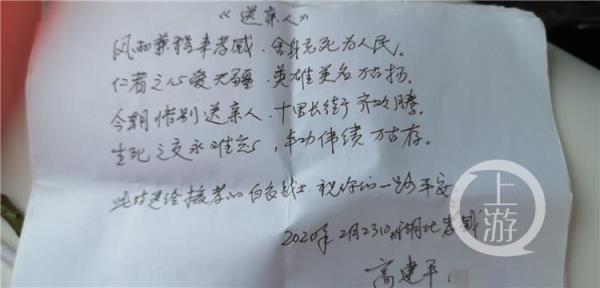 《送亲人》
风雨兼程来孝感,舍身忘死为人民。
仁者之心爱无疆,英雄美名万古扬。
今朝惜别送亲人,十里长街齐欢腾。
生死之交永难忘,丰功伟绩万古存。
此诗送给援孝的白衣战士,祝你们一路平安
2020年2月23日 湖北孝感
高建平
上游